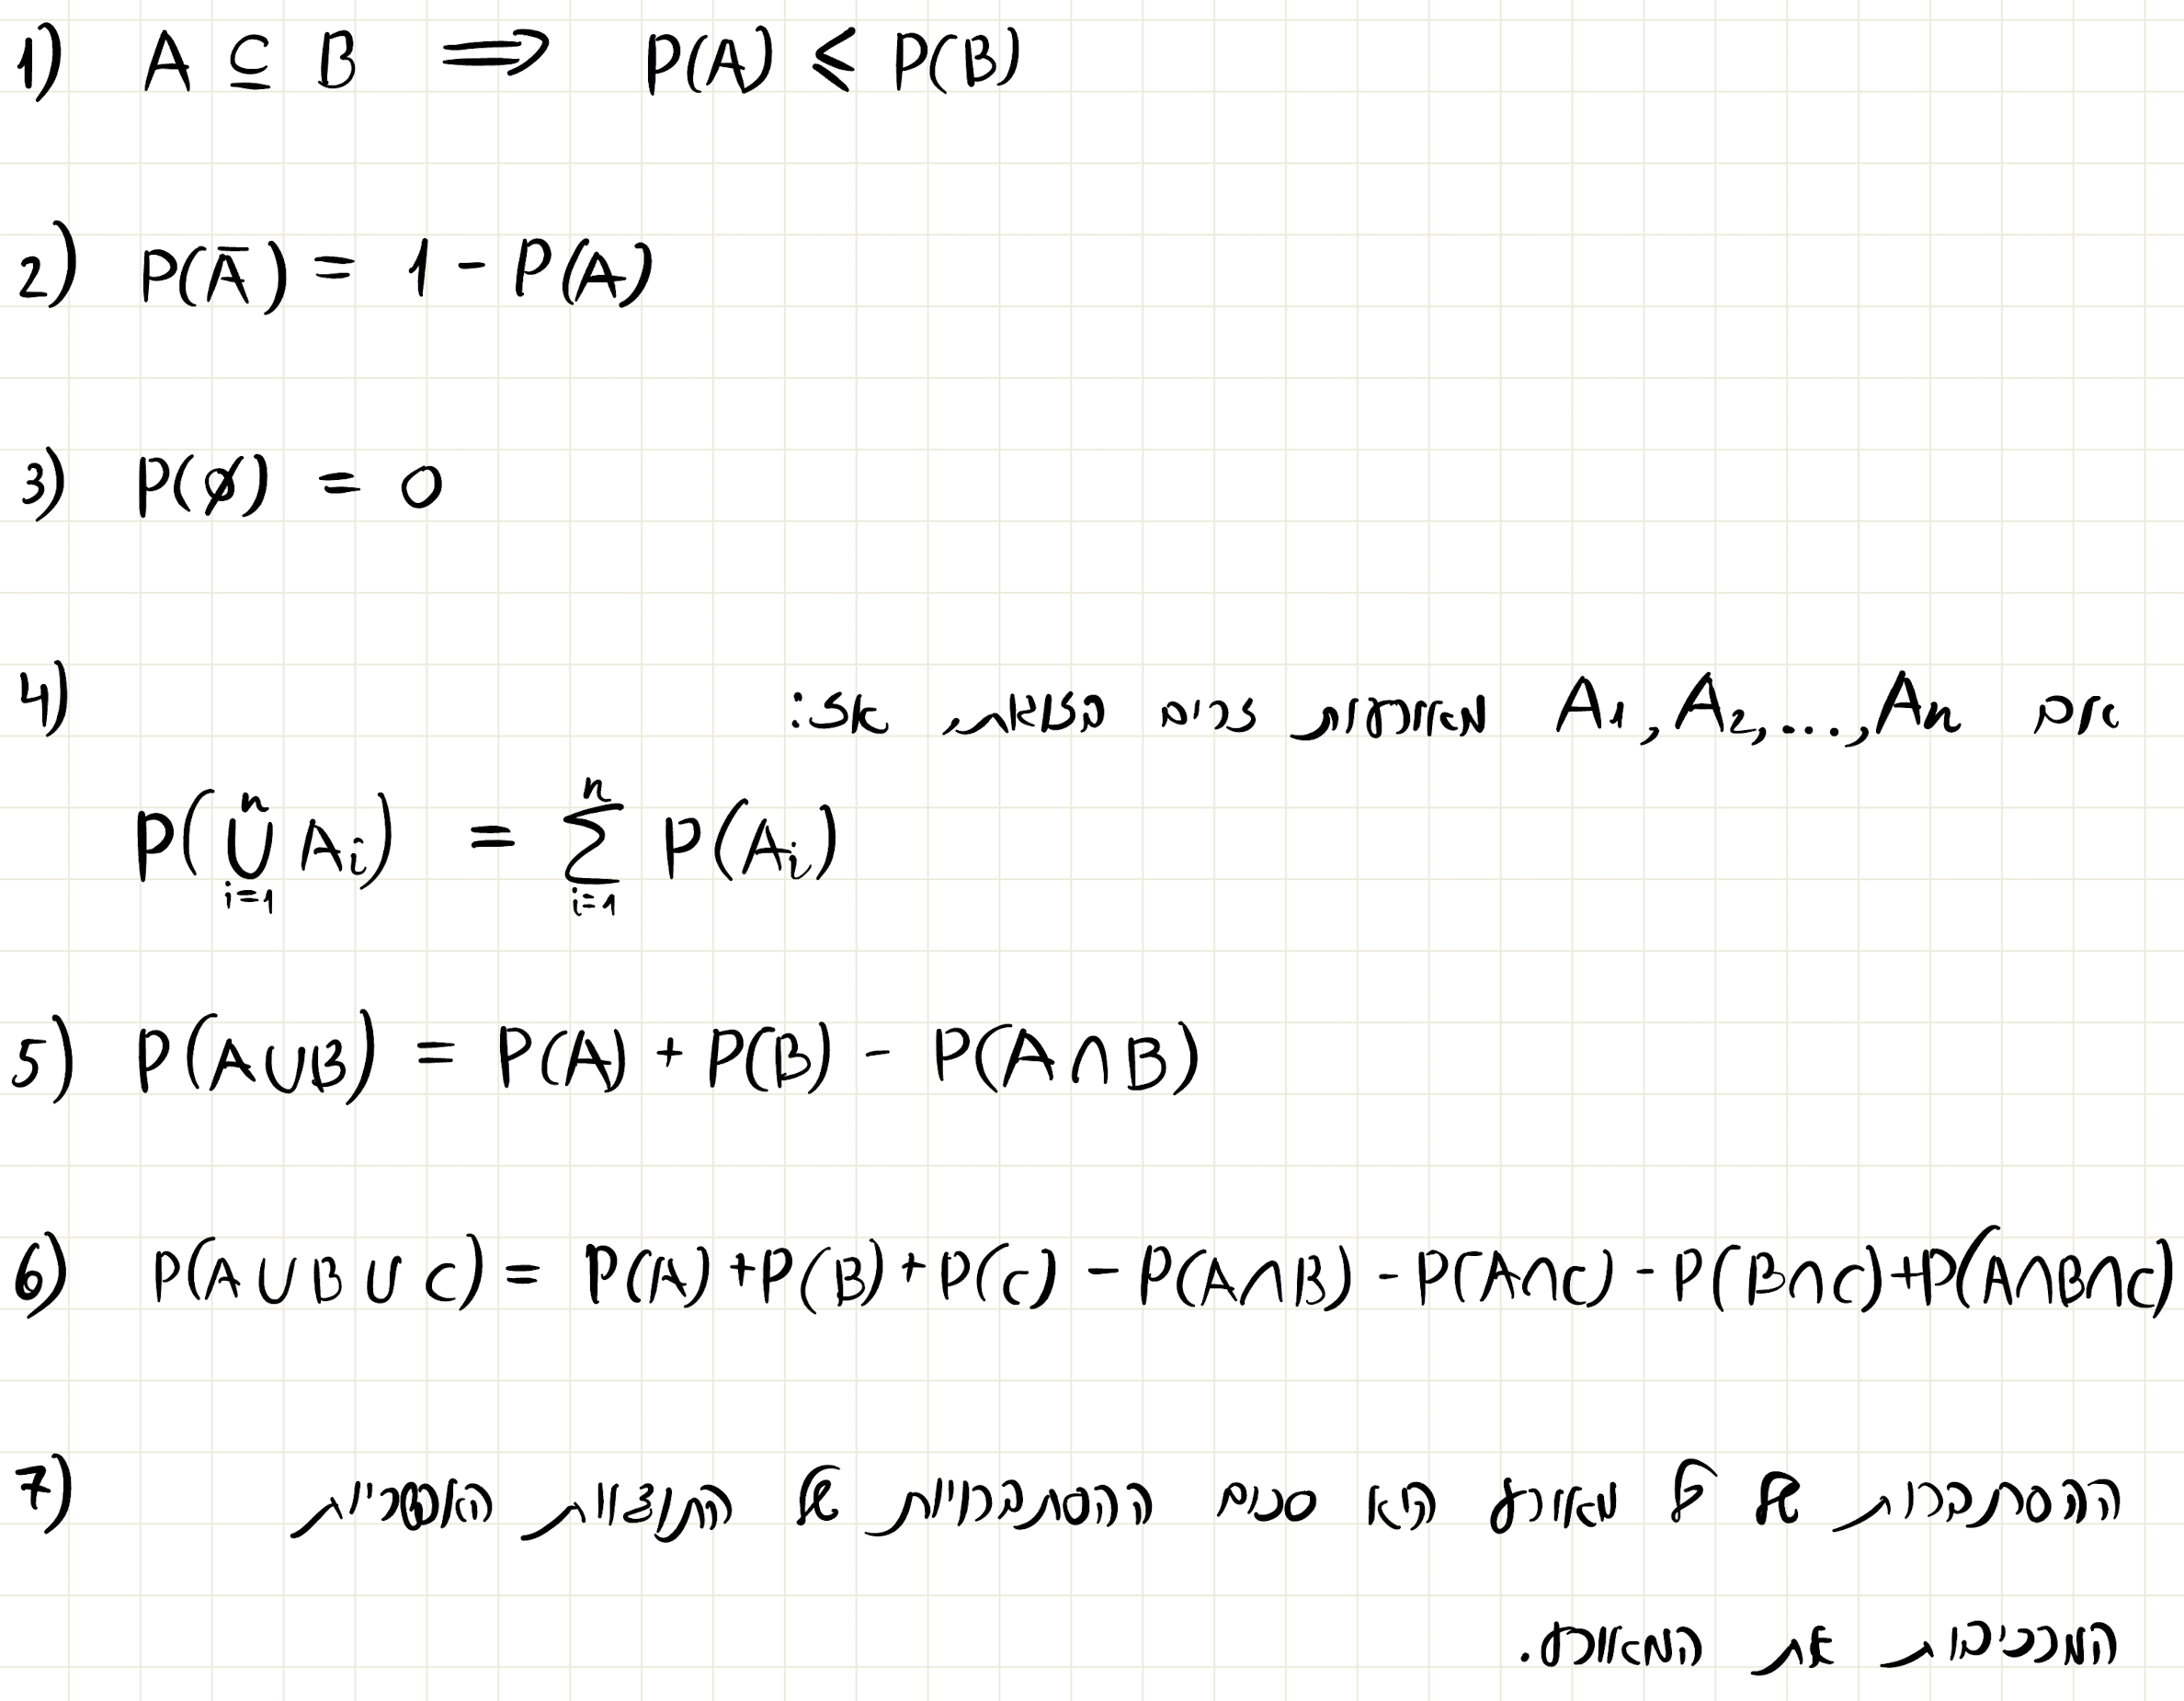 1) A ⊆ B ⟹ P(A) ≤ P(B)
2) P(Ā) = 1 - P(A)
3) P(∅) = 0
4) אם A₁, A₂, ..., Aₙ מאורעות זרים בזוגות, אז:
P(⋃ᵢ₌₁ⁿ Aᵢ) = ∑ᵢ₌₁ⁿ P(Aᵢ)
5) P(A∪B) = P(A) + P(B) - P(A∩B)
6) P(A∪B∪C) = P(A)+P(B)+P(C) - P(A∩B) - P(A∩C) - P(B∩C)+P(A∩B∩C)
7) ההסתברות של כל מאורע הוא סכום ההסתברויות של התוצאות האפשריות
המרכיבות את המאורע.